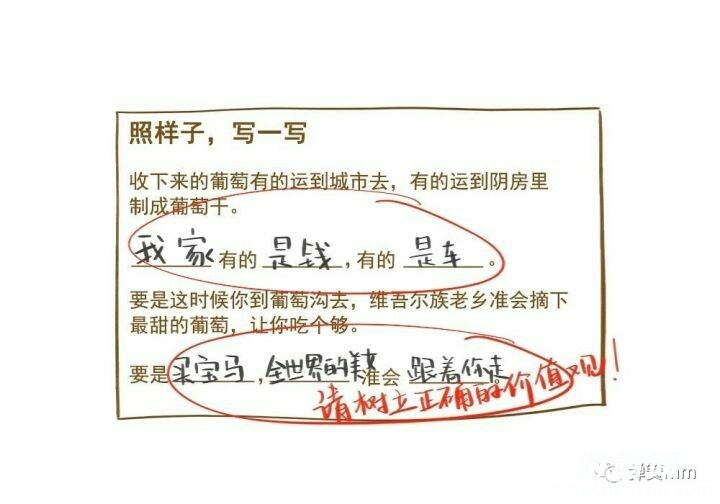 照样子，写一写
收下来的葡萄有的运到城市去，有的运到阴房里
制成葡萄干。
我家有的是钱,有的是车。
要是这时候你到葡萄沟去，维吾尔族老乡准会摘下
最甜的葡萄，让你吃个够。
要是买宝马,全世界的美女准会跟着你走。
请树立正确的价值观！